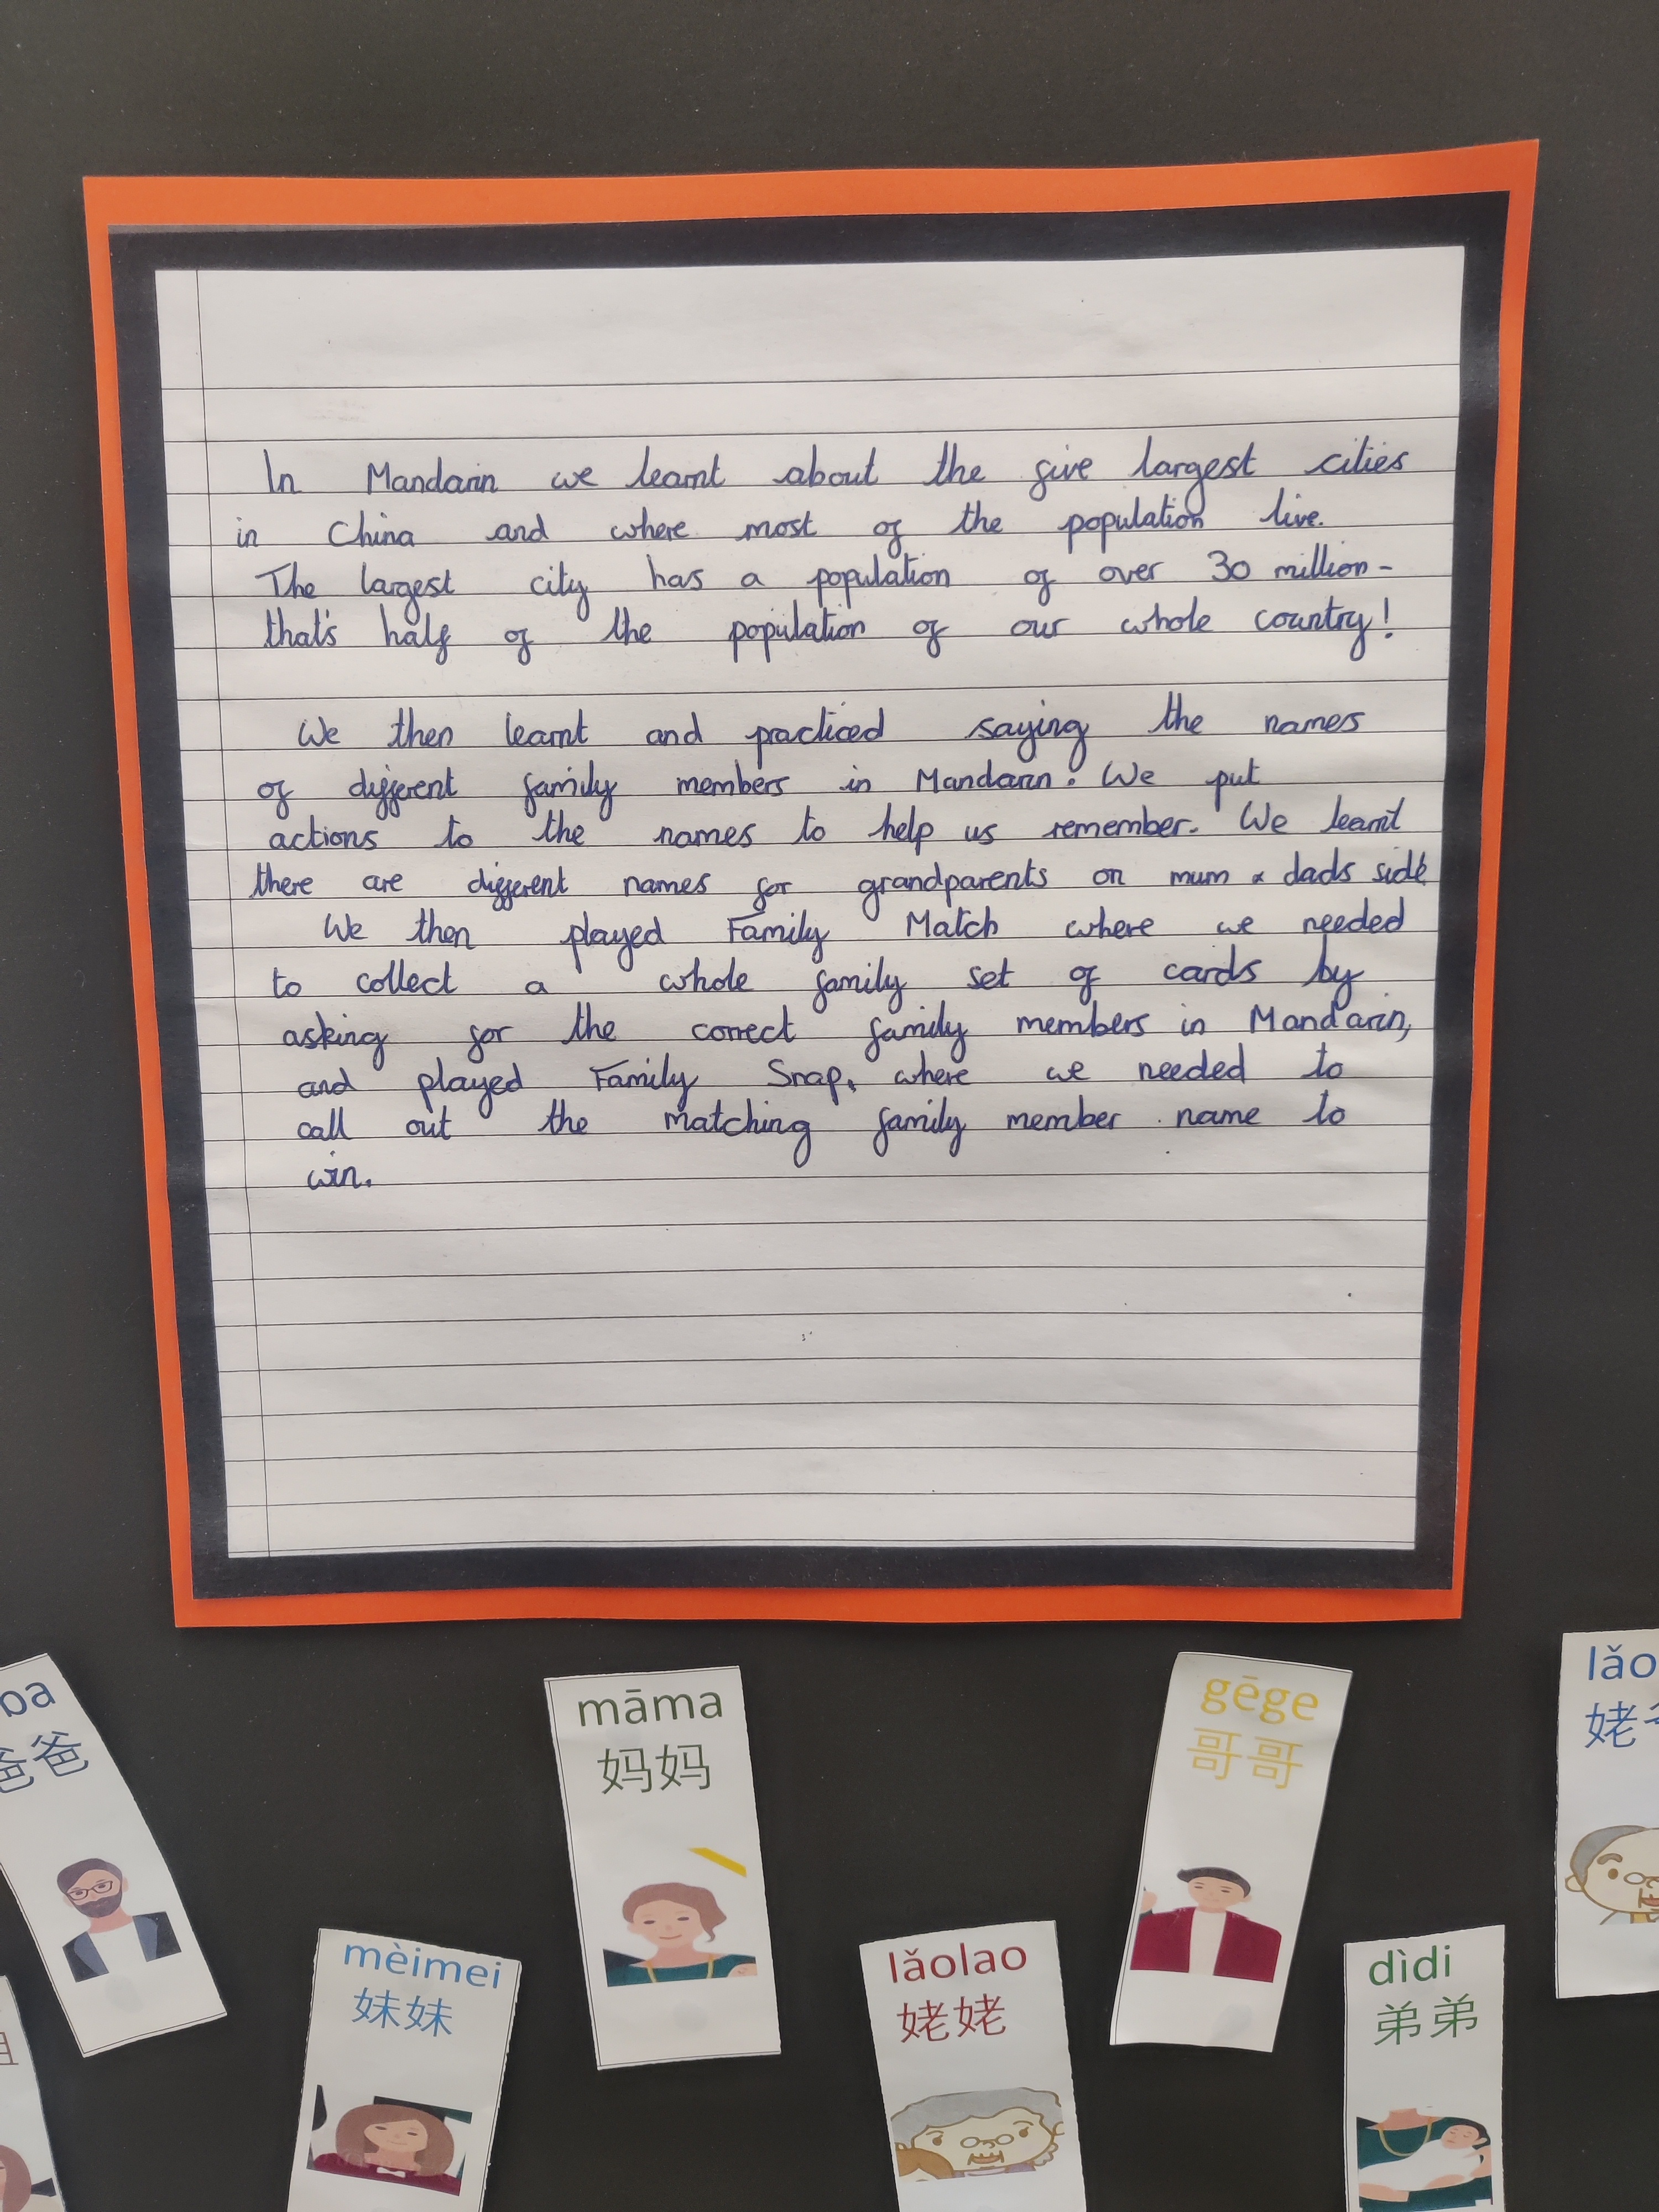 In Mandarin we learnt about the five largest cities
in China and where most of the population live.
The largest city has a population of over 30 million -
that's half of the population of our whole country!
We then learnt and practiced saying the names
of different family members in Mandarin. We put
actions to the names to help us remember. We learnt
there are different names for grandparents on mum & dads side
We then played Family Match where we needed
to collect a whole family set of cards by
asking for the correct family members in Mandarin,
and played Family Snap, where we needed to
call out the matching family member name to
win.
ba
爸爸
māma
妈妈
gēge
哥哥
lǎo
姥
mèimei
妹妹
lǎolao
姥姥
dìdi
弟弟